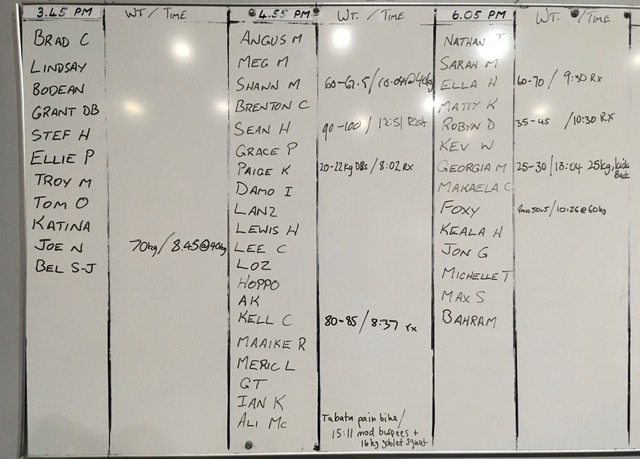 3.45 PM WT / TIME
BRAD C
LINDSAY
BODEAN
GRANT DB
STEF H
ELLIE P
TROY M
TOM O
KATINA
JOE N 70kg / 8.45@40kg
BEL S-J
4.55 PM WT. / TIME
ANGUS M
MEG M
SHAWN M 60-67.5 / 10:04@40kg
BRENTON C
SEAN H 90-100 / 12:51
GRACE P
PAIGE K 20-22kg DBs / 8:02 RX
DAMO I
LANZ
LEWIS H
LEE C
LOZ
HOPPO
AK
KELL C 80-85 / 8:37 rx
MAAIKE R
MERIC L
GT
IAN K
ALI MC Tabata pain bike /
15:11 mod burpees +
16kg goblet squat
6.05 PM WT. / TIME
NATHAN
SARAH M
ELLA H 60-70 / 9:30 RX
MATTY K
ROBYN D 35-45 / 10:30 RX
KEV W
GEORGIA M 25-30 / 13:04 25kg, kick
Back
MAKAELA C
FOXY / 10:26@60kg
KEALA H
JON G
MICHELLE T
MAX S
BAHRAM